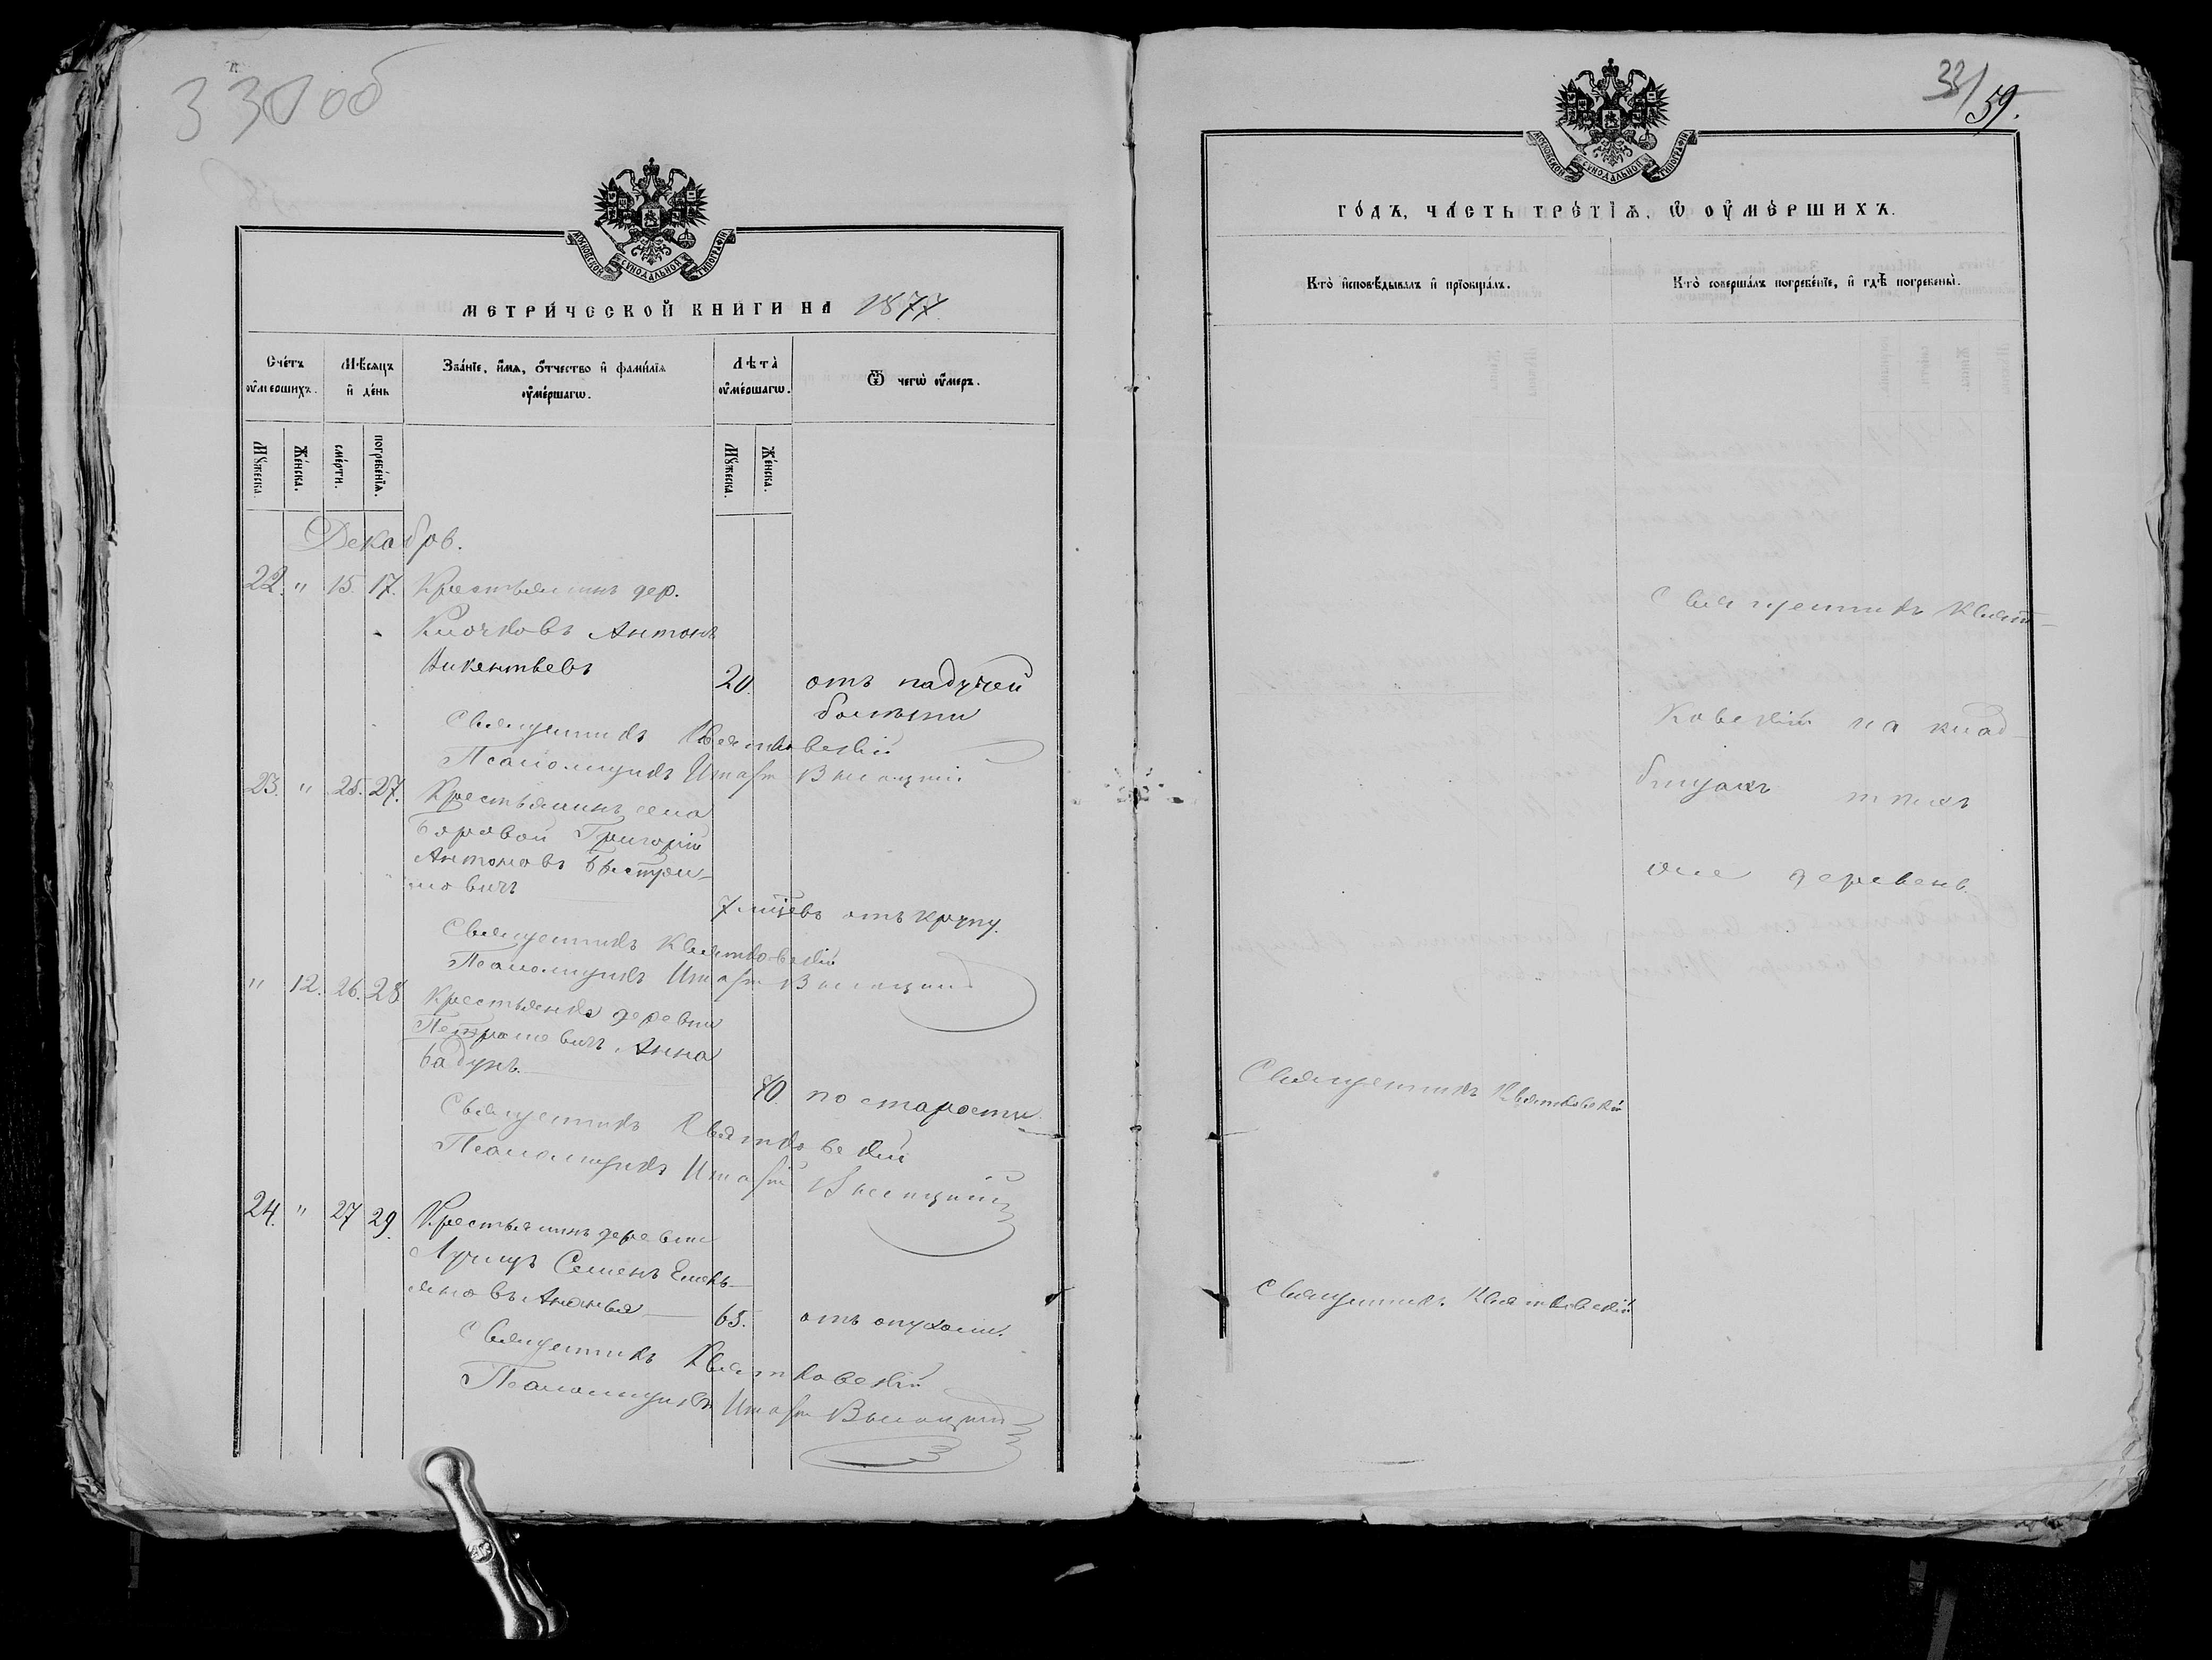 330 об
МОСКОВСКОЙ СѴНОДАЛЬНОЙ ТИПОГРАФІИ
МЕТРИ́ЧЕСКОЙ КНИ́ГИ НА 1877
Сче́тъ оу҆ме́ршихъ.
Мѣ́сяцъ и҆ де́нь
Зва́нїе, и҆́мѧ, ѻ҆́тчество и҆ фами́лїѧ оу҆ме́ршагѡ.
Лѣта̀ оу҆ме́ршагѡ.
Ѿ чегѡ̀ оу҆́меръ.
Мꙋ́жеска.
Же́нска.
сме́рти.
погребе́нїѧ.
Мꙋ́жеска.
Же́нска.
Декабрь.
22. " 15. 17. Крестьянинъ дер.
Клочковъ Антонъ
Викентьевъ 20. отъ падучей
болѣзни
Священникъ Квятковскій
Псаломщикъ Высоцкій
23. " 25. 27. Крестьянинъ села
Боровой Григорій
Антоновъ
7 мѣсяцевъ отъ крупу.
Священникъ Квятковскій
Псаломщикъ Высоцкій
" 12. 26. 28 Крестьянка деревни
Анна
Бадунь. 70. по старости
Священникъ Квятковскій
Псаломщикъ Высоцкій
24. " 27 29. Крестьянинъ деревни
Лучицъ Семенъ Емель-
яновъ 65. отъ опухоли.
Священникъ Квятковскій
Псаломщикъ Высоцкій
33/59.
МОСКОВСКОЙ СѴНОДАЛЬНОЙ ТИПОГРАФІИ
ГО́ДЪ, ЧА́СТЬ ТРЕ́ТЇѦ, Ѡ҆ ОУ҆МЕ́РШИХЪ.
Кто̀ и҆сповѣ́дывалъ и҆ прїѡбща́лъ.
Кто̀ соверша́лъ погребе́нїе, и҆ гдѣ̀ погребены̀.
Священникъ Квят-
ковскій на клад-
бищахъ тѣхъ
же деревень.
Священникъ Квятковскій
Священникъ Квятковскій